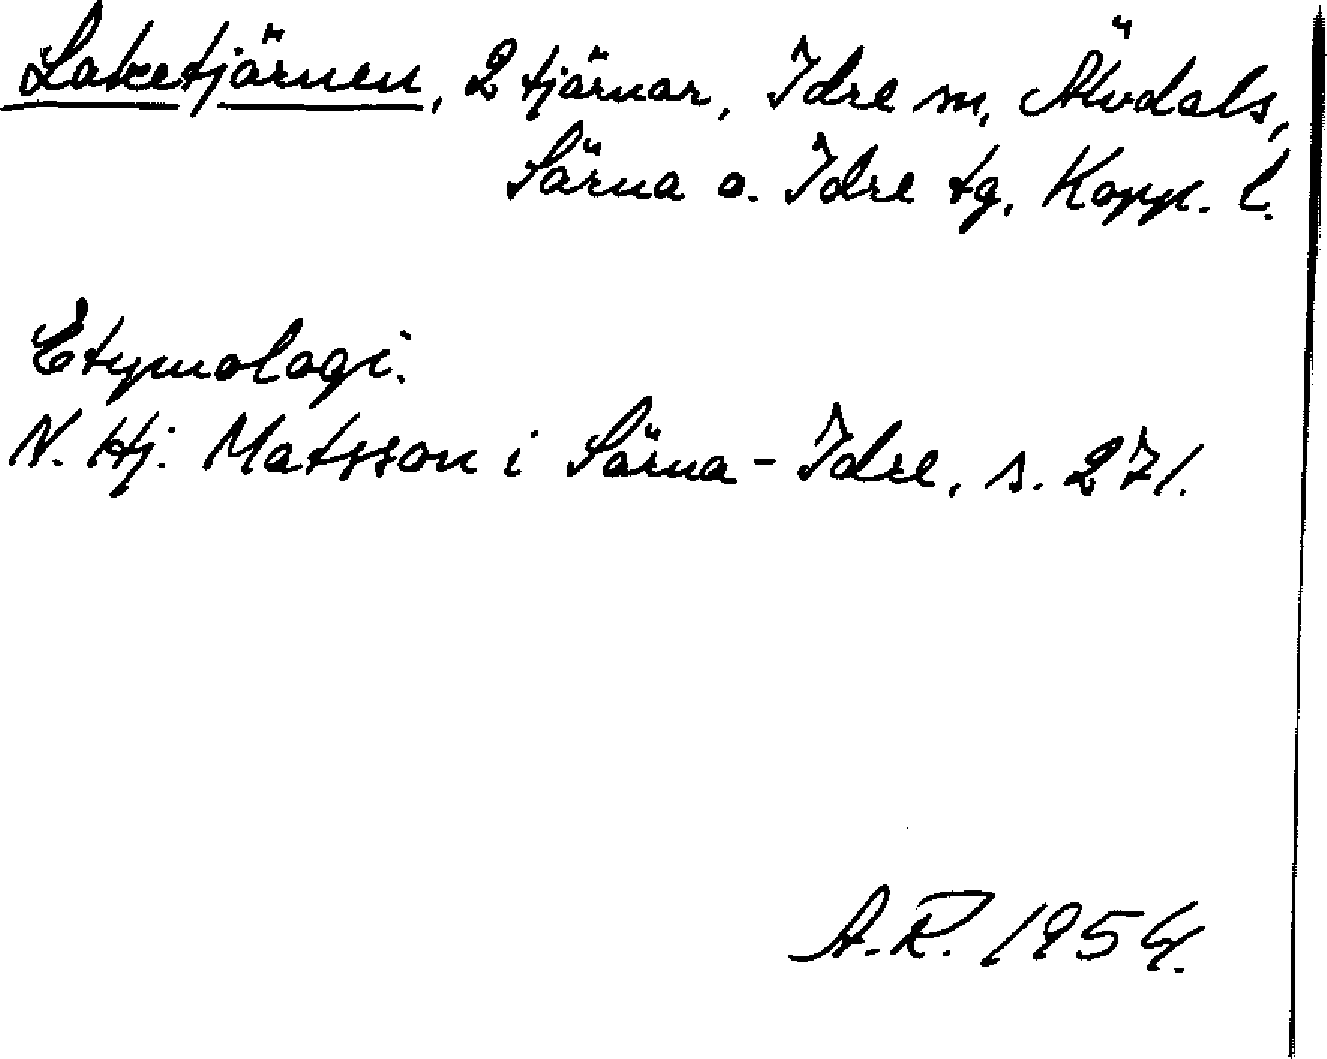 Laketjärnen, 2 tjärnar, Idre sn, Älvdals,
Särna o. Idre tg, Kopp. l.
Etymologi.
N. Hj. Matsson i Särna-Idre, s. 271.
A.R. 1954.